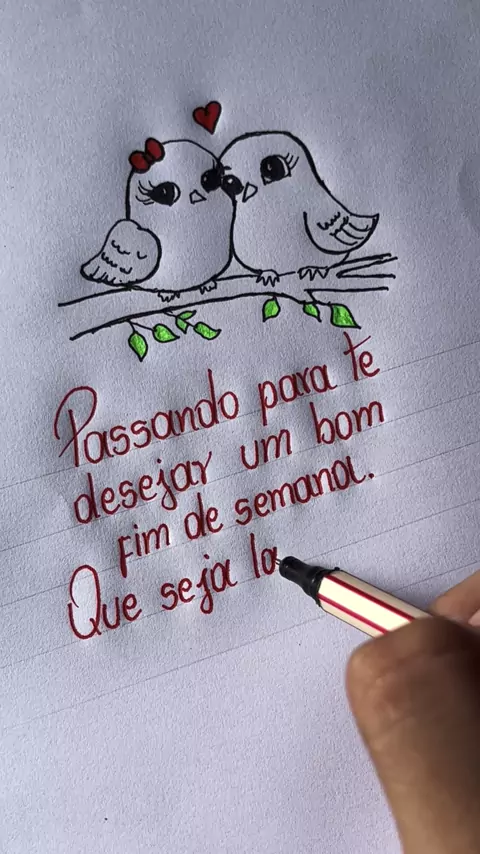 Passando para te
desejar um bom
fim de semana.
Que seja la